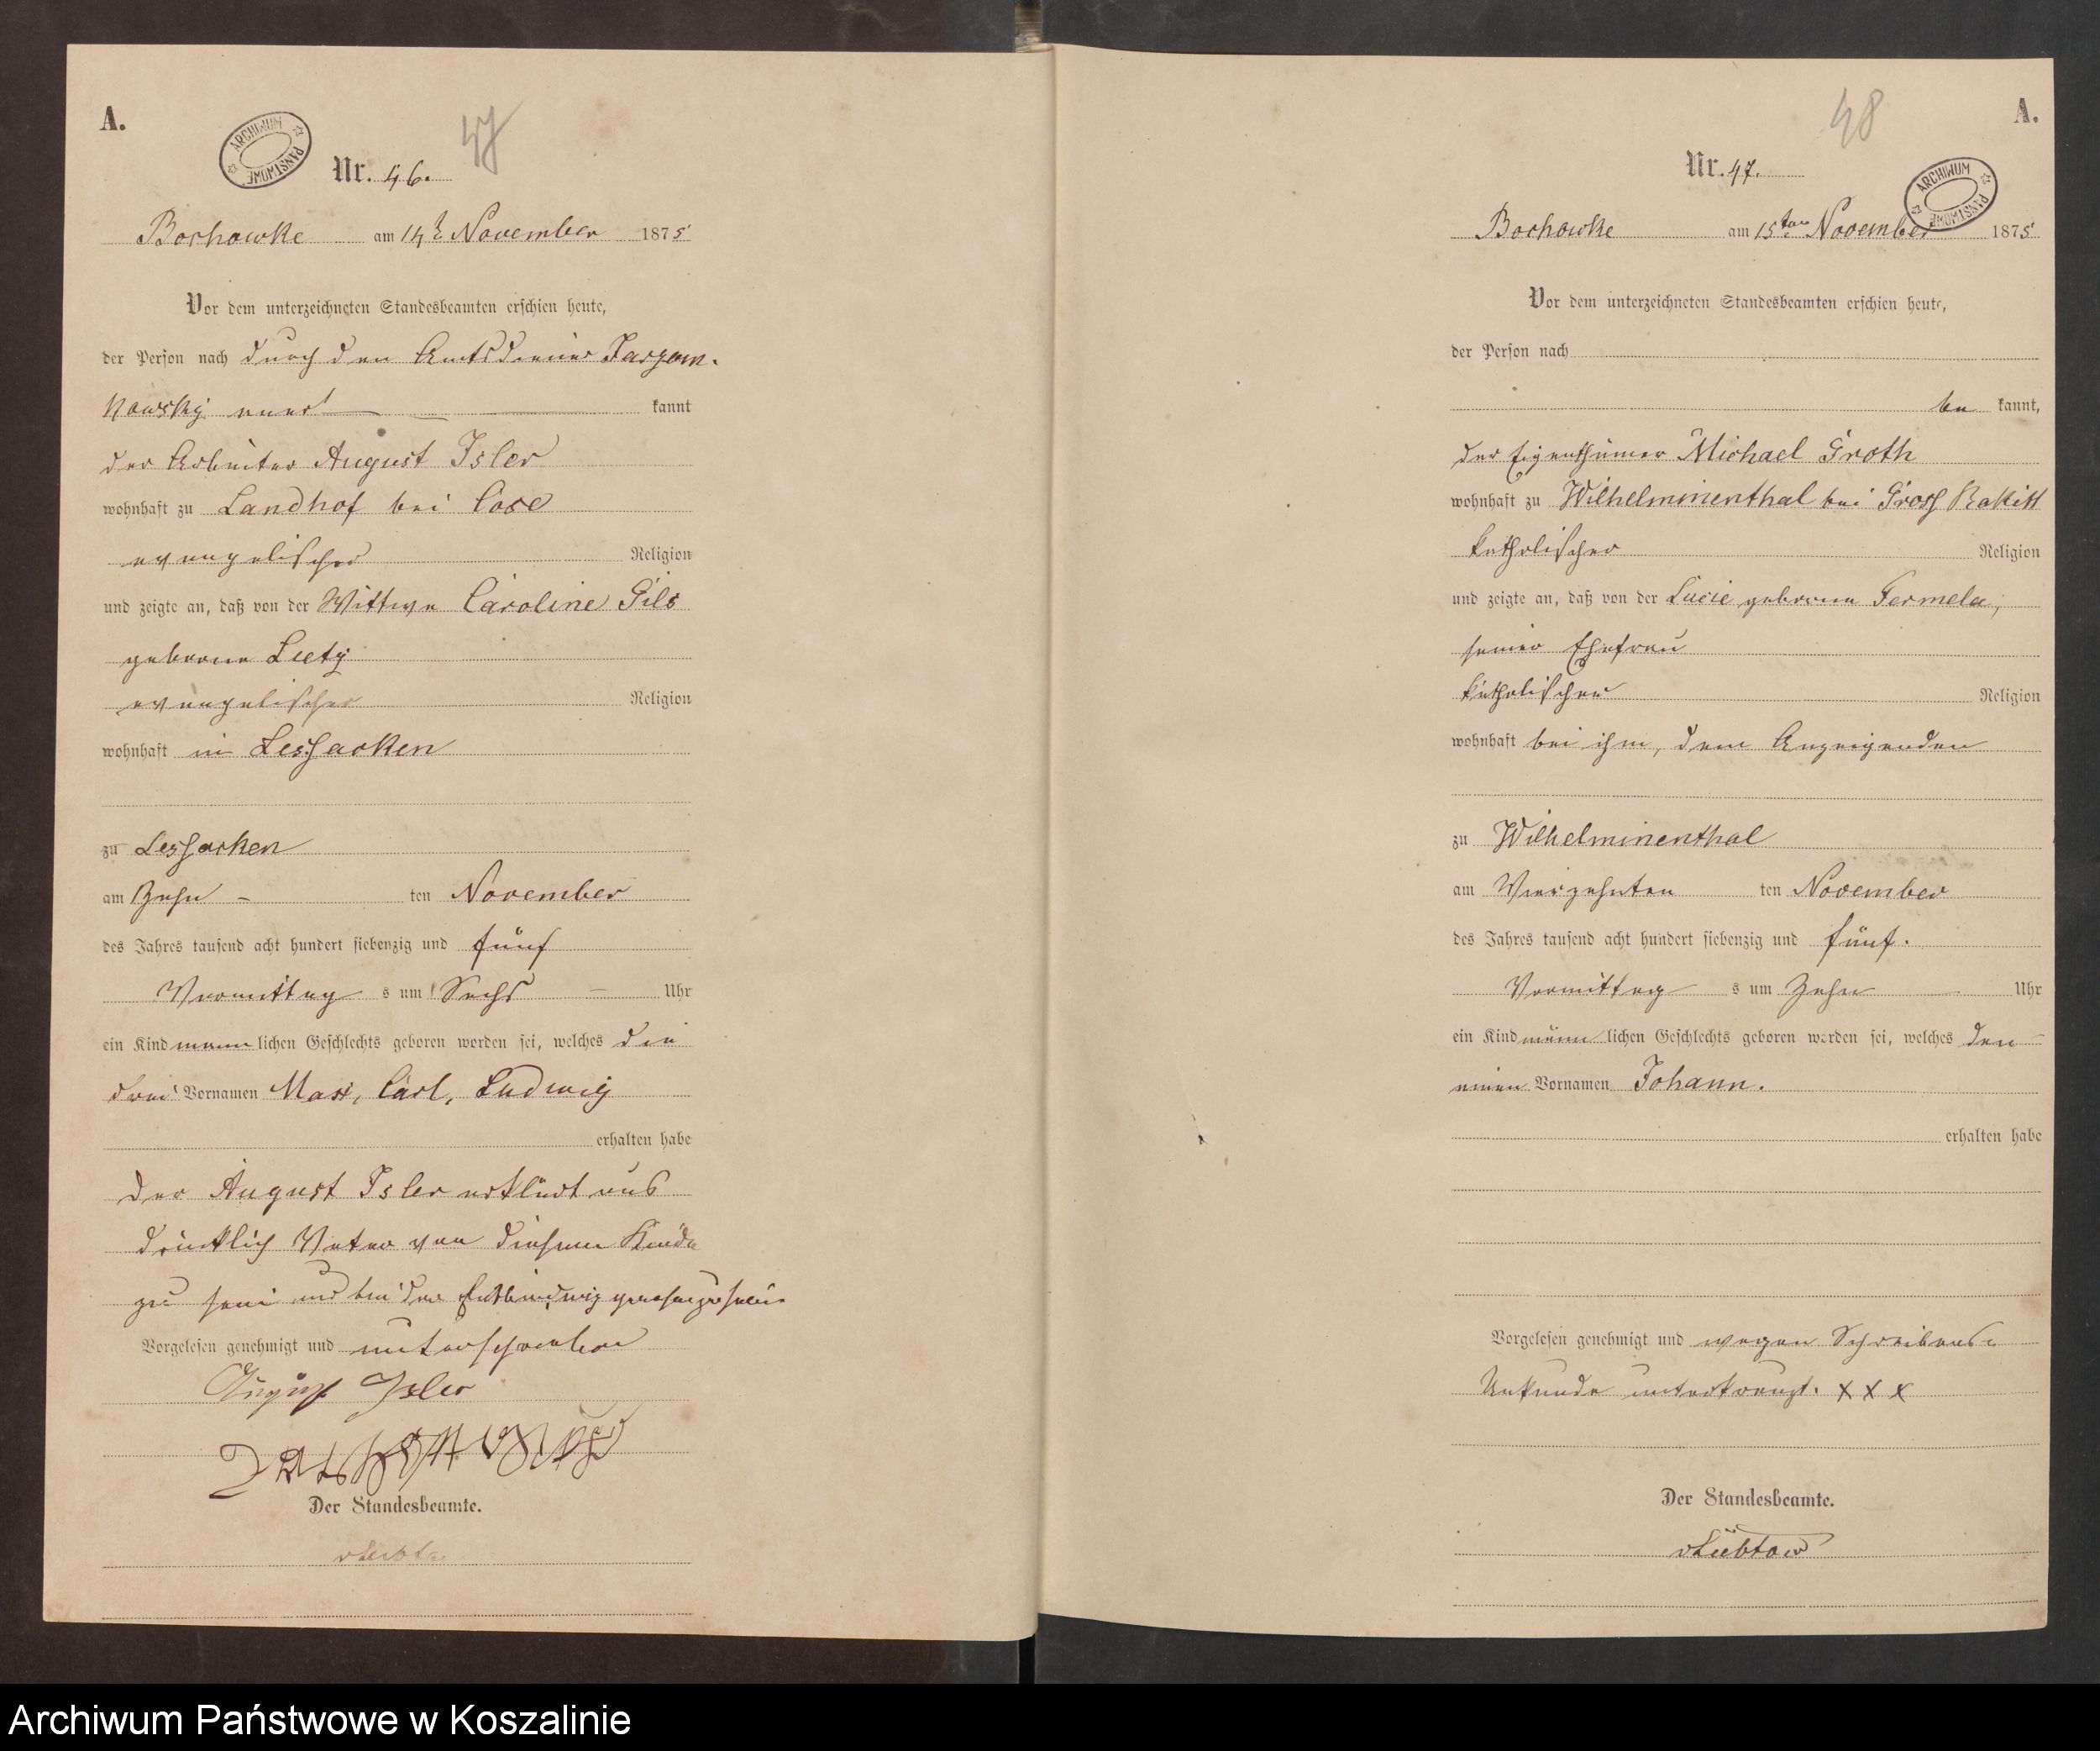 A.
ARCHIWUM PAŃSTWOWE
47
Nr. 46.
Bochowke am 14t November 1875
Vor dem unterzeichneten Standesbeamten erschien heute,
der Person nach durch den Amtsdiener
kannt
der Arbeiter August Isler
wohnhaft zu Landhof bei Cose
evangelischer Religion
und zeigte an, daß von der Wittwe Caroline Gils
geborne
evangelischer Religion
wohnhaft in Lessacken
zu Lessacken
am Zehn - ten November
des Jahres tausend acht hundert siebenzig und fünf
Vormittag s um Sechs Uhr
ein Kind männlichen Geschlechts geboren worden sei, welches die
drei Vornamen Max, Carl, Ludwig
erhalten habe
Der August Isler erklärt aus
drücklich Vater von diesem Kinde
zu sein und bei der Entbindung zu sein
Vorgelesen genehmigt und unterschrieben
August Isler
Der Standesbeamte.
A.
48
Nr. 47.
ARCHIWUM PAŃSTWOWE
Bochowke am 15ten November 1875
Vor dem unterzeichneten Standesbeamten erschien heute,
der Person nach
be kannt,
der Eigenthümer Michael Groth
wohnhaft zu Wilhelminenthal bei Gross Rakitt
katholischer Religion
und zeigte an, daß von der Lucie geborne Formela,
seiner Ehefrau
katholischer Religion
wohnhaft bei ihm, dem Anzeigenden
zu Wilhelminenthal
am Vierzehnten ten November
des Jahres tausend acht hundert siebenzig und fünf.
Vormittag s um Zehn Uhr
ein Kind männlichen Geschlechts geboren worden sei, welches den
einen Vornamen Johann.
erhalten habe
Vorgelesen genehmigt und wegen Schreibens-
Unkunde unterkreuzt. x x x
Der Standesbeamte.
vLiebtow
Archiwum Państwowe w Koszalinie